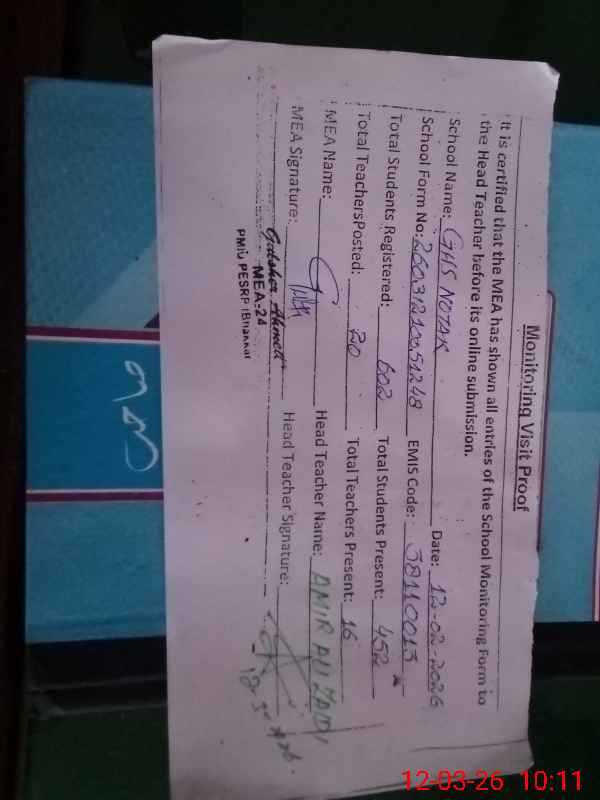 Monitoring Visit Proof
It is certified that the MEA has shown all entries of the School Monitoring Form to
the Head Teacher before its online submission.
School Name: GHS NOTAK Date: 12-02-2026
School Form No: 26031210051248 EMIS Code: 38110013
Total Students Registered: 602 Total Students Present: 452
Total TeachersPosted: 20 Total Teachers Present: 16
MEA Name: Head Teacher Name: AMIR ALI ZAIDI
MEA Signature: Head Teacher Signature:
Gulsher Ahmed
MEA-24
PMIU PESRP (Bhakkar
12-03-26 10:11